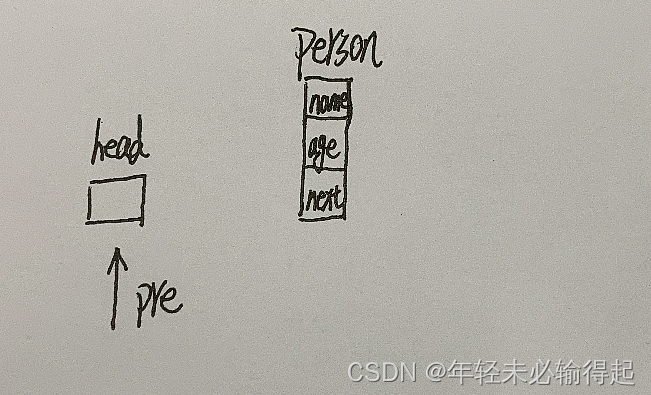 person
name
head
age
next
pre
CSDN @年轻未必输得起